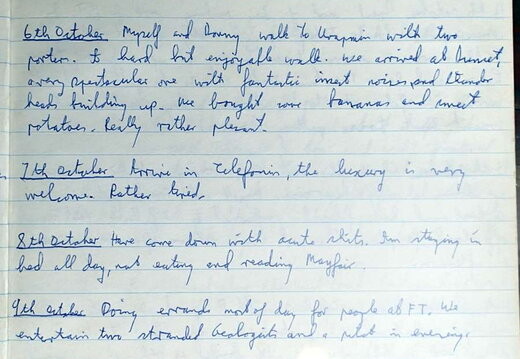 6th October Myself and Danny walk to Urapmin with two
porters. A hard but enjoyable walk. We arrived at sunset,
a very spectacular one with fantastic insect noises and thunder
heads building up. We bought some bananas and sweet
potatoes. Really rather pleasant.
7th October Arrive in Telefomin, the luxury is very
welcome. Rather tired.
8th October Have come down with acute shits. I'm staying in
bed all day, not eating and reading Mayfair.
9th October Doing errands most of day for people at FT. We
entertain two stranded Geologists and a pilot in evening.